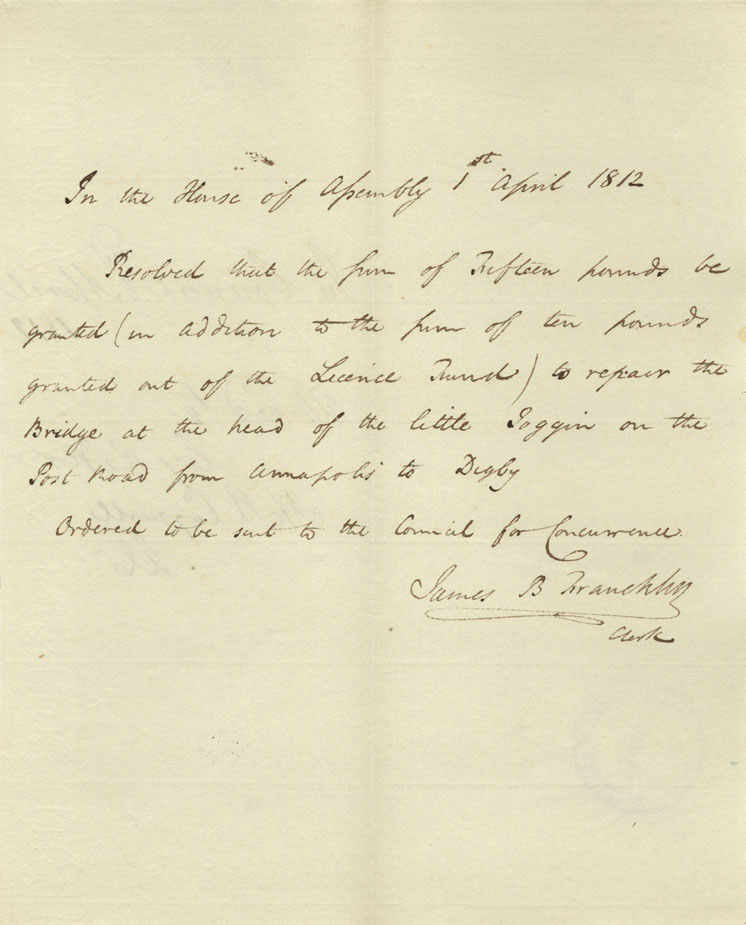 In the House of Assembly 1st April 1812
Resolved that the sum of Fifteen pounds be
granted (in addition to the sum of ten pounds
granted out of the Licence Fund) to repair the
Bridge at the head of the little Joggin on the
Post Road from Annapolis to Digby
Ordered to be sent to the Council for Concurrence
James B Francklin
Clerk